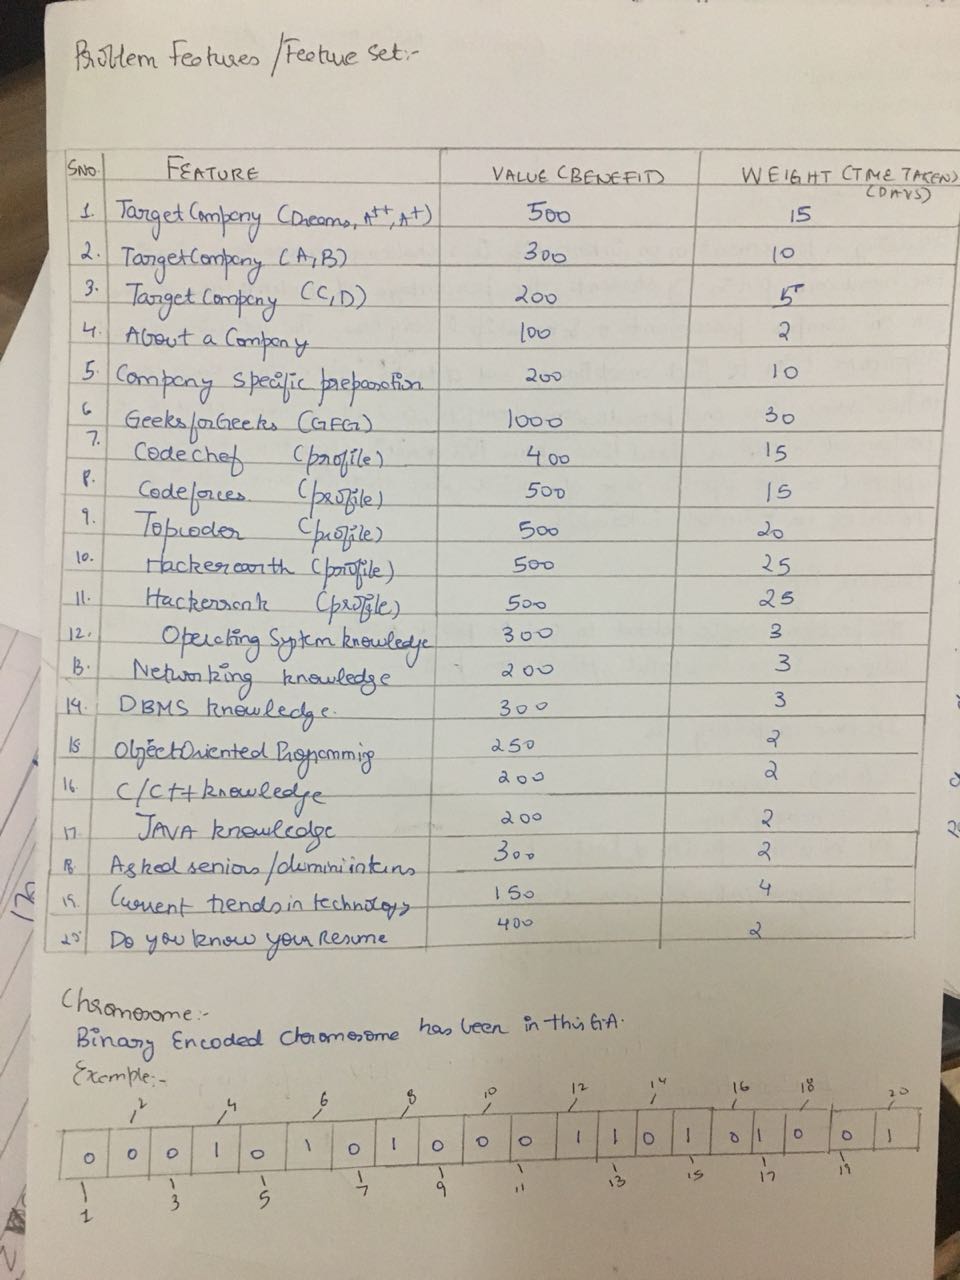 Problem Features / Feature set:-
SNO. FEATURE VALUE (BENEFIT) WEIGHT (TIME TAKEN) (DAYS)
1. Target Company (Dreams, A++, A+) 500 15
2. Target Company (A, B) 300 10
3. Target Company (C, D) 200 5
4. About a Company 100 2
5. Company specific preparation 200 10
6 Geeks for Geeks (GFG) 1000 30
7. Codechef (profile) 400 15
8. Codeforces. (profile) 500 15
9. Topcoder (profile) 500 20
10. Hackerearth (profile) 500 25
11. Hackerrank (profile) 500 25
12. Operating System knowledge 300 3
13. Networking knowledge 200 3
14. DBMS knowledge. 300 3
15 Object Oriented Programming 250 2
16. C/C++ knowledge 200 2
17. JAVA knowledge 200 2
18. Asked seniors / alumini interns 300 2
19. Current trends in technology 150 4
20. Do you know your Resume 400 2
Chromosome:-
Binary Encoded Chromosome has been in this G.A.
Example:-
2 4 6 8 10 12 14 16 18 20
0 0 0 1 0 1 0 1 0 0 0 1 1 0 1 0 1 0 0 1
1 3 5 7 9 11 13 15 17 19